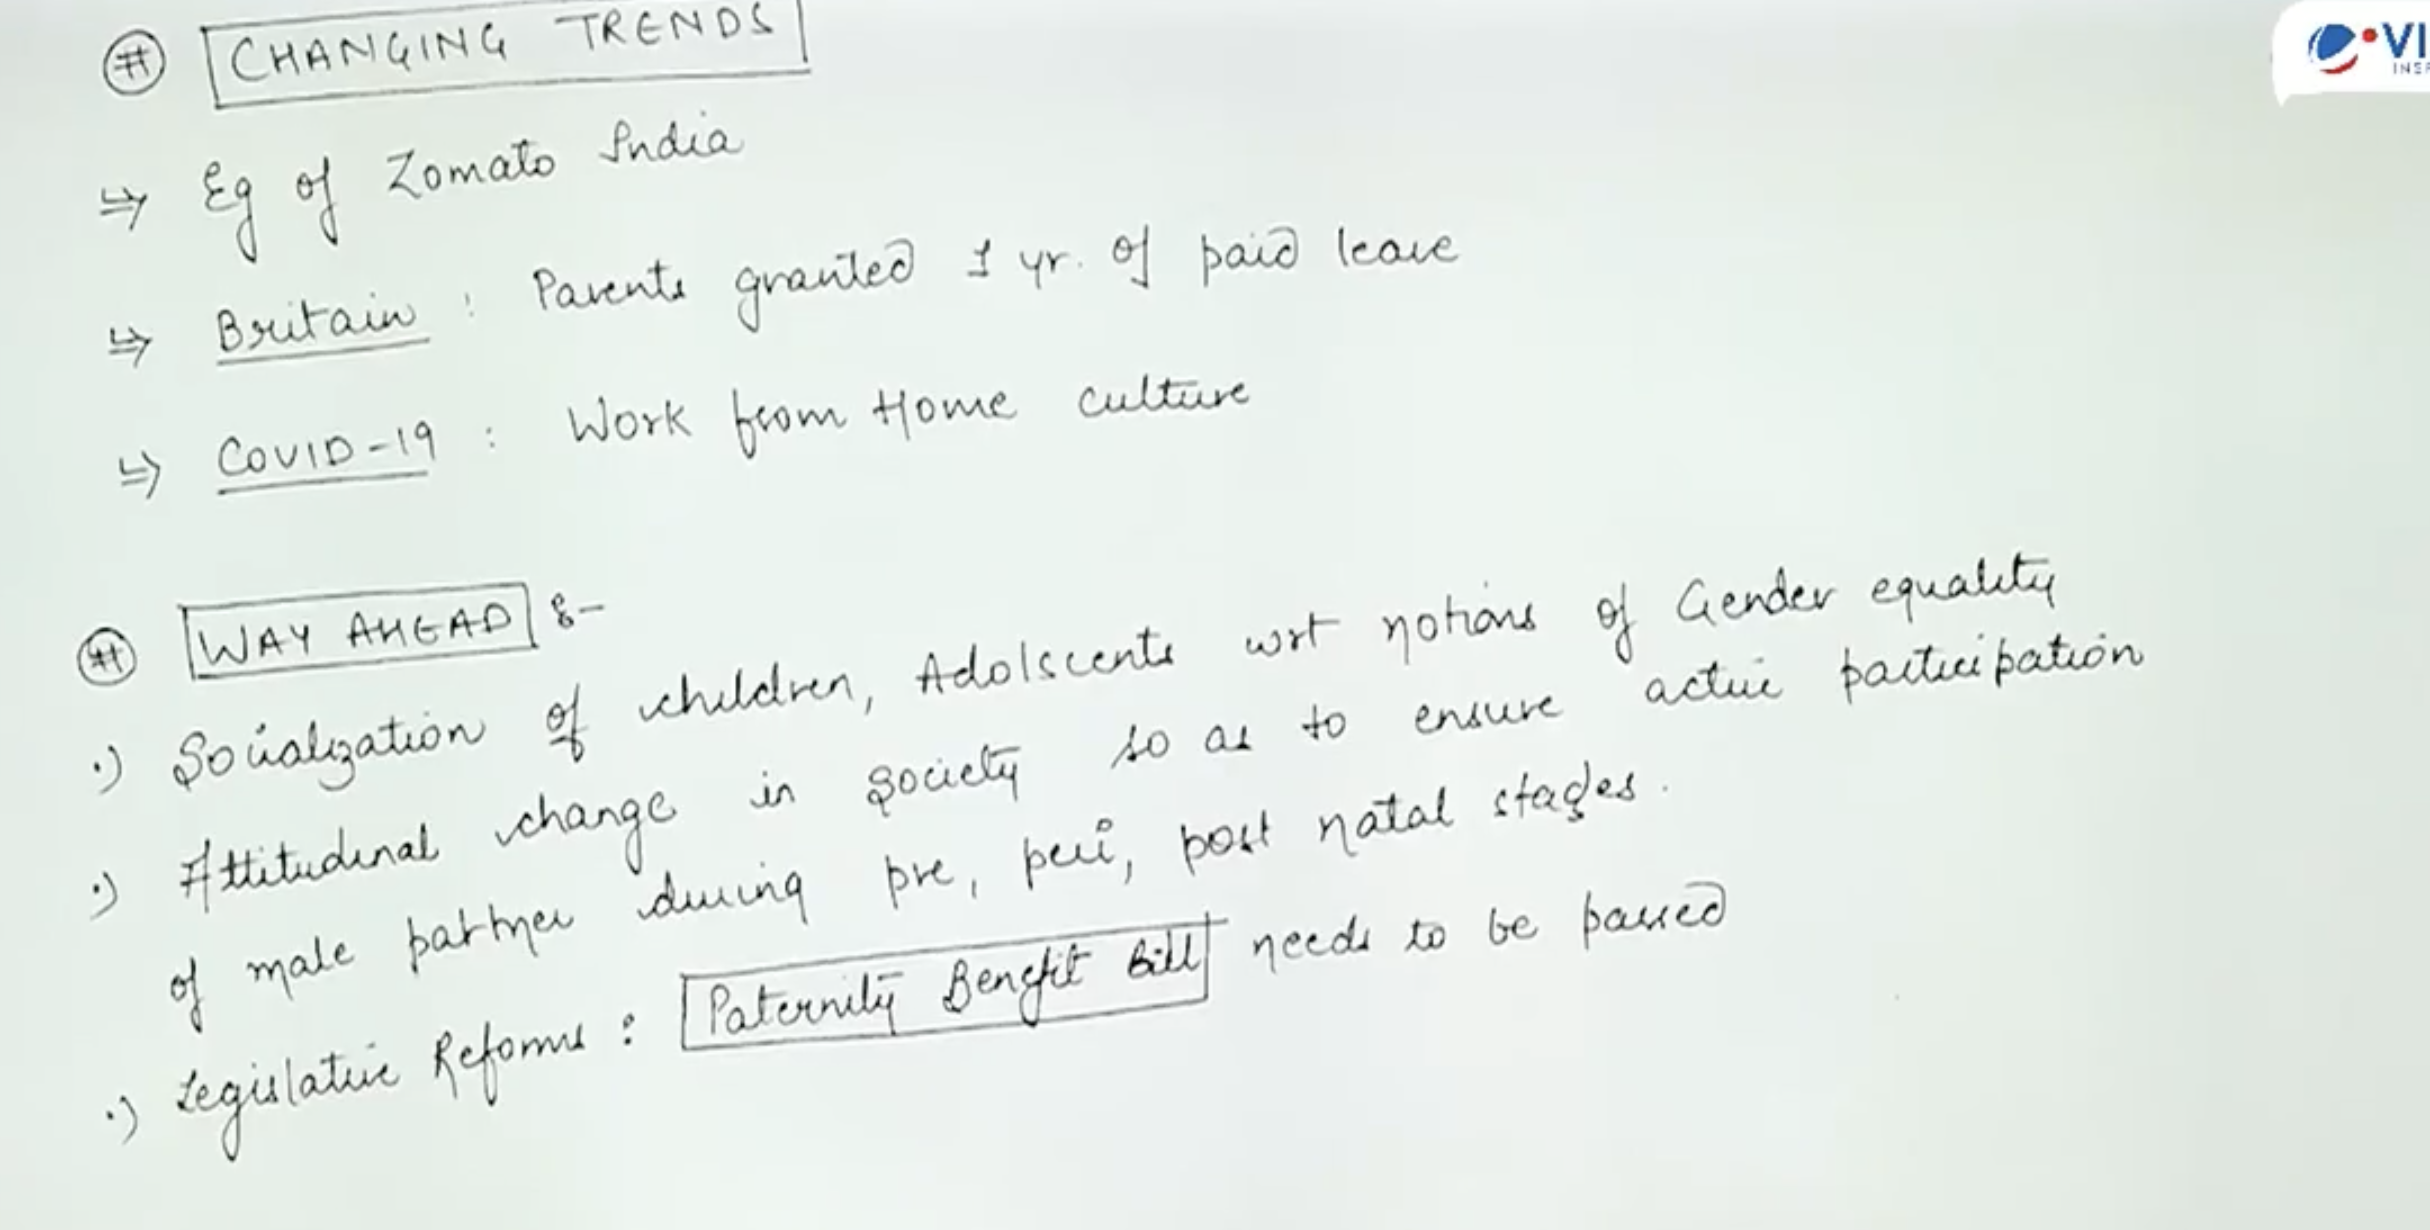 # CHANGING TRENDS
VI
INSP
⇒ Eg of Zomato India
⇒ Britain : Parents granted 1 yr. of paid leave
⇒ COVID-19 : Work from Home culture
# WAY AHEAD :-
·) Socialization of children, Adolscents wrt notions of Gender equality
·) Attitudinal change in society so as to ensure active participation
of male partner during pre, peri, post natal stages.
·) Legislative Reforms : Paternity Benefit Bill needs to be passed